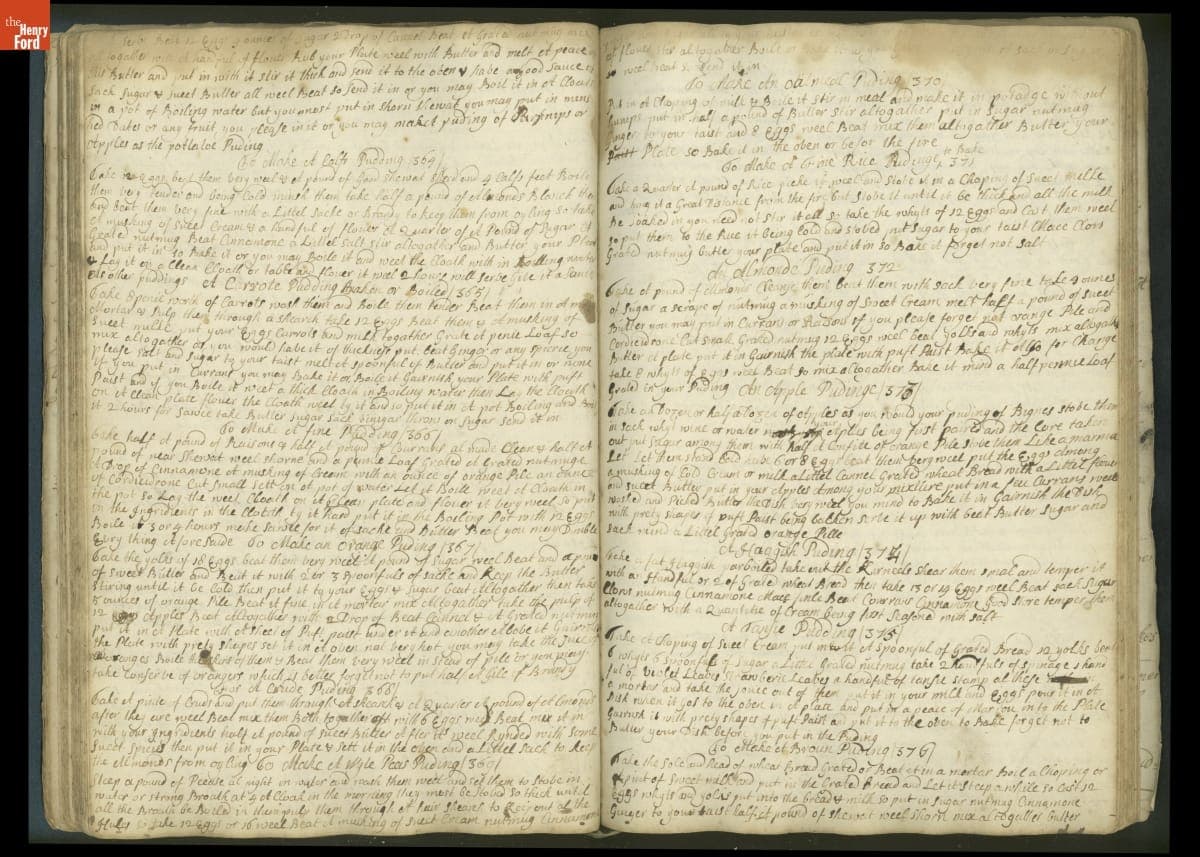 the
Henry
Ford
Beat 12 Eggs 9 ounce of Sugar 2 Drop of Beat
together with A handful of flower Rub your Plate weel with Butter and melt et peace
Butter and put in with it stir it thick and send it to the oven & have a good sauce
Sack Sugar & sweet Butter all weel Beat so send it in or you may Boil it in et Cloath
in a pot of Boiling water but you most put in shorn shewat you may put in mins
Dates or any fruit you please in it or you may maket puding of Parsnips or
Apples as the potatoe Puding
To Make et Calfs Pudding 364
Take 12 Eggs beat them very weel & et pound of shewat and 4 Calfs feet Boile
them very tender and being Cold minsh them take half a pound of Almonds Blanch
and Beat them very fine with a Littel Sacke or Brandy to keep them from oyling so take
et mutsking of sweet Cream & a handful of flower et Quarter of et Pound of Sugar et
Great nutmug Beat Cinnamone a Littel Salt stir altogather and Butter your Plate
and put it in so Bake it or you may Boile it and weet the Cloath with in Boilling
& Lay it on a Clean Cloath or table and flower it weel 2 hours will serve Give it a Sauce
as other puddings
et Carrote Pudding Baken or Boiled 365
Take 3 penie worth of Carrots wash them and Boile them tender Beat them in et
Mortar & Pulp them through a shearch take 12 Eggs Beat them & et mutsking of
Sweet mille put your Eggs Carrots and milk together Grate et penie Loaf so
mix altogather as you would have it of thickness put beat Ginger or any spice you
please salt and Sugar to your taist melt et spoonful of Butter and put it in or more
if you put in Currans you may Bake it or Boile it Gairnish your Plate with puft
Paist and if you Boile it weet a thick Cloath in Boiling water then Lay the Cloath
on et Clean plate flower the Cloath weel ty it and so put it in et pot Boiling and
it 2 hours for sawce take Butter Sugar Sack Vinigar throw on Sugar send it in
To Make et fine Pudding 366
Take half et pound of Reasons & half et pound of Currans al made Clean & half et
pound of near Shewat weel shorne and a penie Loaf Grated et Grated nutmuge
et Drop of Cinnamone et mutsking of Creme with an ounce of orange Pile an ounce
of Cordicidrone Cut Small sett on et pot of water Let it Boile weet et Cloath in
the pot so Lay the weel Cloath on et Clean plate and flower it very weel so put
in the Ingridents in the Cloath ty it hard put it in the Boiling Pot with 12 Eggs
Boile it 3 or 4 hours make sauce for it of sacke and Butter Beat you may Dimble
Every thing aforesaide
To Make an Orange Puding 367
Take the yolks of 18 Eggs beat them very weel et pound of Sugar weel Beat and a pound
of sweet Butter and Beat it with 2 or 3 spoonfuls of sacke and keep the Butter
Stiring until it be Cold then put it to your Eggs & Sugar beat altogather then take
5 ounces of orange Pile Beat it fine in et mortar mix altogather take the pulp of
Apples Beat altogather with 2 Drop of Beat Cannel & et Grated nutmug
put it in et Plate with et sheet of Puft paist under it and another above it Gairnish
the Plate with prety shapes set it in et oven not very hot you may take the juice
oranges Boile them & Beat them very weel in stead of pile or you may
take Conserve of oranges which is better forget not to put half et Gill of Brandy
et Crude Puding 368
Take et pinte of Cruds and put them through et shearch & et Quarter et pound of Almonds
after they are weel Beat mix them Both together with 6 Eggs weel Beat mix it in
with your Ingridents half et pound of sweet Butter after it weel Rynded with some
Sweet Spices then put it in your Plate & Sett it in the oven and a Littel Sack to keep
the Almonds from oyling
To Make et Whyte Peas Puding 369
Steep a pound of Pease al night in water and wash them weel and set them to stobe in
water or strong Broath at 4 et Cloak in the morning they most be stobed so thick until
all the Broath be Boiled in them pulp them through et hair shearce to keep out al the
Huls so take 12 Eggs or 16 weel Beat et mutsking of sweet Cream nutmug Cinnamon
et flower stir altogather Boile or
weel Beat so send it in
To Make An Oatmeal Puding 370
Put in et Choping of milk & Boile it stir in meal and make it in poradge without
Lumps put in half a pound of Butter stir altogather put in Sugar nutmug
Ginger to your taist and 8 Eggs weel Beat mix them altogather Butter your
Plate so Bake it in the oven or befor the fire
To Make et fine Rice Pudinge to Bake 371
Take a Quarter et pound of Rice picke it weel and stobe it in a Choping of sweet milke
and hing it a Great Distance from the fire but stobe it until it be thick and all the milk
Be soaked in you need not stir it all so take the whyts of 12 Eggs and Cast them weel
so put them to the Rice it being Cold and stobed put Sugar to your taist Mace Clovs
Grated nutmug butter your plate and put it in so Bake it forget not salt
An Almonde Puding 372
Take et pound of Almonds Blange them beat them with sack very fine take 9 ounce
of Sugar a scrape of nutmug a mutsking of Sweet Cream melt half a pound of sweet
Butter you may put in Currans or Raisons if you please forget not orange Pile and
Cordicidrone Cut small Grated nutmug 12 Eggs weel beat yolks and whyts mix altogather
Butter et plate put it in Gairnish the plate with puft Paist Bake it also for Change
take 8 whyts of Eggs weel Beat so mix altogather Bake it mind a half pennie Loaf
Grated in your Puding
An Apple Pudinge 373
Take an Dozen or half a Dozen of Apples as you would your puding of Bignes stobe them
in sack whyt wine or water your Apples being first paired and the Core taken
out put Sugar among them with half et Confite et orange Pile stobe them Like a marma
Let Let them stand and take 6 or 8 Eggs beat them very weel put the Eggs among
a mutsking of Cold Cream or milk a Littel Cannel Grated wheat Bread with a Littel flower
and sweet Butter put in your Aples Among your mixture put in a few Currans weel
washed and Picked Butter the Dish very weel you mind to Bake it in Gairnish the Dish
with prety shapes of puft Paist being bakken serve it up with beet Butter Sugar and
sack mind a Littel Grated orange Pille
et Haggish Puding 374
Take a fat Haggish parboiled take out the Kurneels shear them smal and temper it
with a Handful or 2 of Grated wheat Bread then take 13 or 14 Eggs weel Beat sack Sugar
Clovs nutmug Cinnamone Mace finle Beat Currans Cinnamone and stire temper them
altogather with a Quantitie of Cream being hot seasone with salt
et Tansie Puding 375
Take et Choping of Sweet Cream put in it et spoonful of Grated Bread 12 yolks beat
6 whyts 6 spoonful of Sugar a Little Grated nutmug take 2 handfuls of spinage 1 hand
ful of violet Leaves Strawberie Leaves a handful of tansie stamp al these
a mortar and take the jouce out of them put it in your milk and Eggs pour it in et
Dish when it gos to the oven in et plate and put in a peace of Marrow into the Plate
Gairnish it with prety shapes of puft Paist and put it to the oven to Bake forget not to
Butter your Dish before you put in the Puding
To Make et Broun Puding 376
Take the Sole and head of wheat Bread Grated or Beat et in a mortar Boile a Choping or
pint of sweet milk and put in the Grated Bread and Let it steep a while so Cast 12
Eggs whyts and yolks put into the bread & milk so put in sugar nutmug Cinnamone
Ginger to your taist half et pound of shewat weel shorn mix altogather butter